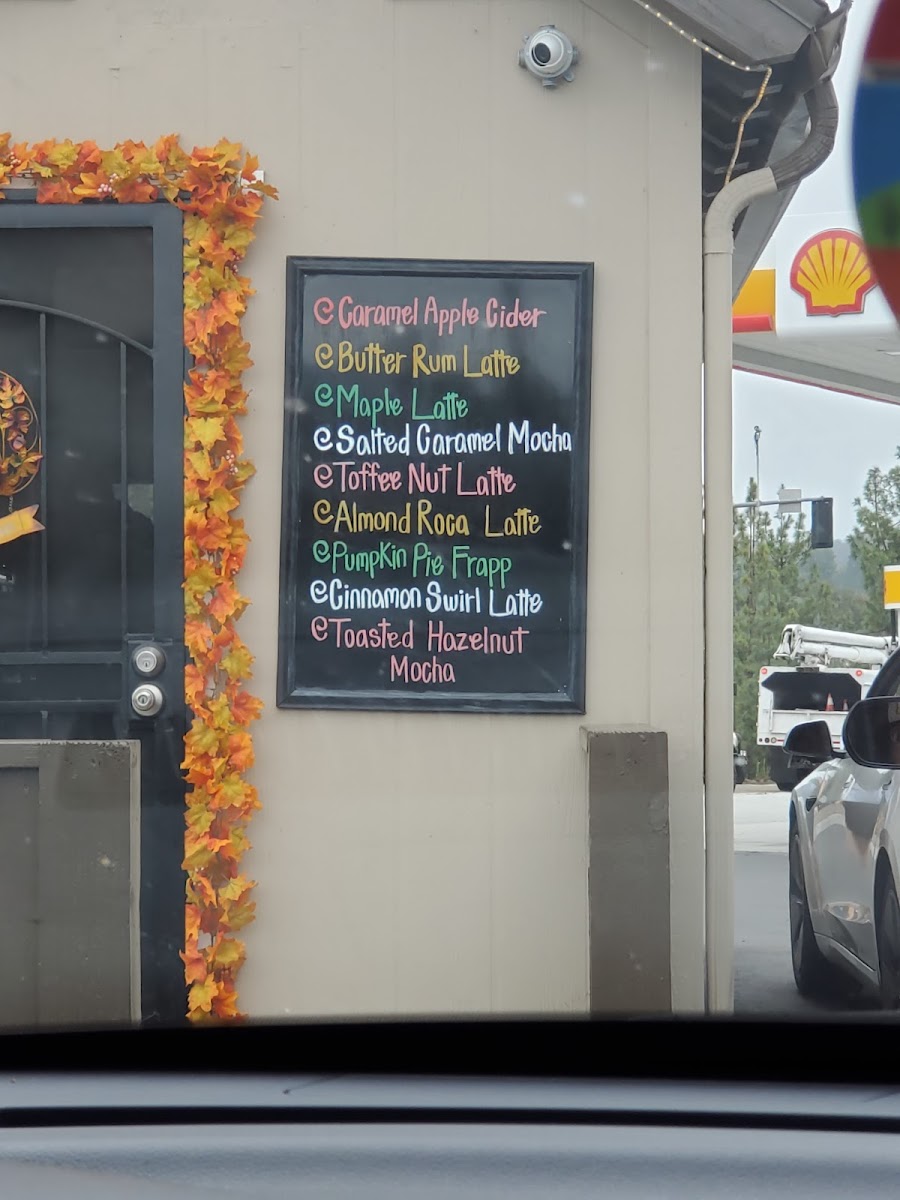 Caramel Apple Cider
Butter Rum Latte
Maple Latte
Salted Caramel Mocha
Toffee Nut Latte
Almond Roca Latte
Pumpkin Pie Frapp
Cinnamon Swirl Latte
Toasted Hazelnut
Mocha